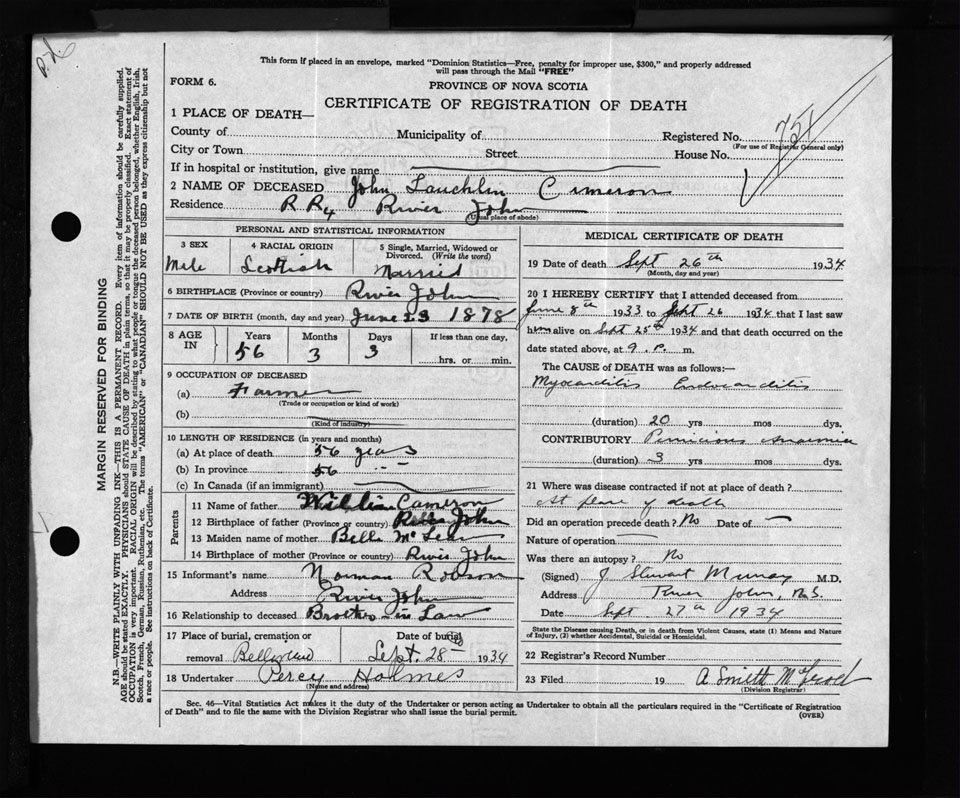 P.N.
This form if placed in an envelope, marked "Dominion Statistics—Free, penalty for improper use, $300," and properly addressed
will pass through the Mail "FREE"
FORM 6.
PROVINCE OF NOVA SCOTIA
CERTIFICATE OF REGISTRATION OF DEATH
1 PLACE OF DEATH—
County of Municipality of Registered No. 751
(For use of Registrar General only)
City or Town Street House No.
If in hospital or institution, give name
2 NAME OF DECEASED John Lauchlin Cameron
Residence R R 4 River John
(Usual place of abode)
PERSONAL AND STATISTICAL INFORMATION
3 SEX 4 RACIAL ORIGIN 5 Single, Married, Widowed or Divorced. (Write the word)
Male Scottish Married
6 BIRTHPLACE (Province or country) River John
7 DATE OF BIRTH (month, day and year) June 23 1878
8 AGE IN Years Months Days If less than one day,
56 3 3 hrs. or min.
9 OCCUPATION OF DECEASED
(a) Farmer
(Trade or occupation or kind of work)
(b)
(Kind of industry)
10 LENGTH OF RESIDENCE (in years and months)
(a) At place of death 56 years
(b) In province 56 " "
(c) In Canada (if an immigrant)
Parents
11 Name of father William Cameron
12 Birthplace of father (Province or country) River John
13 Maiden name of mother Belle McLean
14 Birthplace of mother (Province or country) River John
15 Informant's name Norman Robson
Address River John
16 Relationship to deceased Brother-in Law
17 Place of burial, cremation or Date of burial
removal Bellview Sept. 28th 1934
18 Undertaker Percy Holmes
(Name and address)
MEDICAL CERTIFICATE OF DEATH
19 Date of death Sept 26th 1934
(Month, day and year)
20 I HEREBY CERTIFY that I attended deceased from
June 8th 1933 to Sept 26 1934 that I last saw
him alive on Sept 25th 1934 and that death occurred on the
date stated above, at 9 P. m.
The CAUSE OF DEATH was as follows:—
Myocarditis Endocarditis
(duration) 20 yrs mos dys.
CONTRIBUTORY Pernicious Anaemia
(duration) 3 yrs mos dys.
21 Where was disease contracted if not at place of death?
At place of death
Did an operation precede death? No Date of —
Nature of operation —
Was there an autopsy? No
(Signed) J Stewart Murray M.D,
Address River John, N.S.
Date Sept 27th 1934
State the Disease causing Death, or in death from Violent Causes, state (1) Means and Nature
of Injury, (2) whether Accidental, Suicidal or Homicidal.
22 Registrar's Record Number
23 Filed 19 A Smith
(Division Registrar)
Sec. 46—Vital Statistics Act makes it the duty of the Undertaker or person acting as Undertaker to obtain all the particulars required in the "Certificate of Registration
of Death" and to file the same with the Division Registrar who shall issue the burial permit.
(OVER)
MARGIN RESERVED FOR BINDING
N.B.—WRITE PLAINLY WITH UNFADING INK—THIS IS A PERMANENT RECORD. Every item of information should be carefully supplied.
AGE should be stated EXACTLY. PHYSICIANS should STATE CAUSE OF DEATH in plain terms, so that it may be properly classified. Exact statement of
OCCUPATION is very important. RACIAL ORIGIN will be described by stating to what people or tongue the deceased person belonged, whether English, Irish,
Scotch, French, German, Russian, Ruthenian, etc. The terms "AMERICAN" or "CANADIAN" SHOULD NOT BE USED as they express citizenship but not
a race or people. See instructions on back of Certificate.